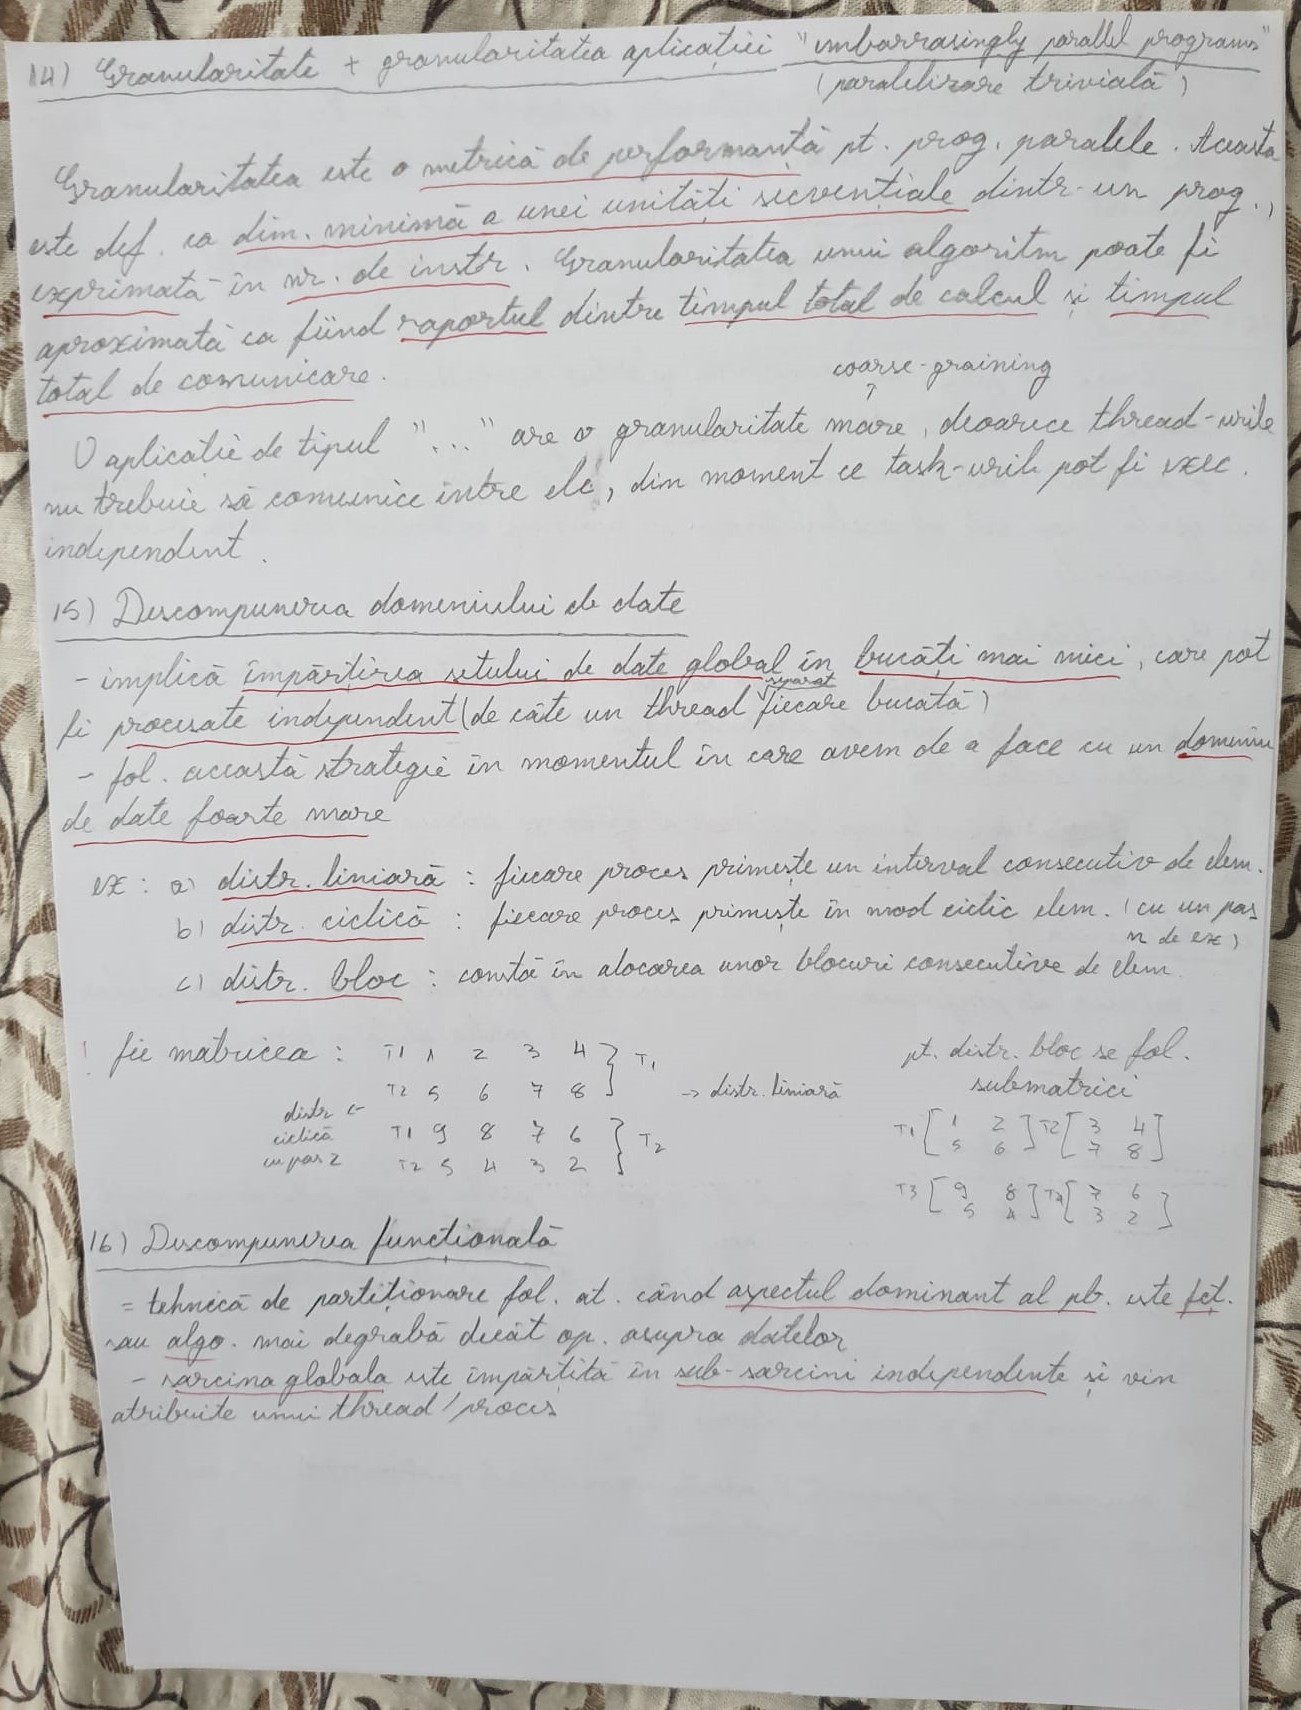 14) Granularitate + granularitatea aplicației "embarrasingly parallel programs"
(paralelizare trivială)
Granularitatea este o metrică de performanță pt. prog. paralele. Aceasta
este def. ca dim. minimă a unei unități secvențiale dintr-un prog.,
exprimată în nr. de instr. Granularitatea unui algoritm poate fi
aproximată ca fiind raportul dintre timpul total de calcul și timpul
total de comunicare.
coarse-graining
↑
O aplicație de tipul "..." are o granularitate mare, deoarece thread-urile
nu trebuie să comunice între ele, din moment ce task-urile pot fi exec.
independent.
15) Descompunerea domeniului de date
- implică împărțirea setului de date global în bucăți mai mici, care pot
separat
fi procesate independent (de câte un thread fiecare bucată)
- fol. această strategie în momentul în care avem de a face cu un domeniu
de date foarte mare
ex: a) distr. liniară : fiecare proces primește un interval consecutiv de elem.
b) distr. ciclică : fiecare proces primește în mod ciclic elem. (cu un pas
n de ex)
c) distr. bloc : constă în alocarea unor blocuri consecutive de elem.
! fie matricea : T1 1 2 3 4 } T1
T2 5 6 7 8 → distr. liniară
distr ← T1 9 8 7 6 } T2
ciclică
cu pas 2 T2 5 4 3 2
pt. distr. bloc se fol.
submatrici
T1 [ 1 2 ] T2 [ 3 4 ]
5 6 7 8
T3 [ 9 8 ] T4 [ 7 6 ]
5 4 3 2
16) Descompunerea funcțională
= tehnică de partiționare fol. at. când aspectul dominant al pb. este fct.
sau algo. mai degrabă decât op. asupra datelor
- sarcina globala este împărțită în sub-sarcini independente și vin
atribuite unui thread/proces